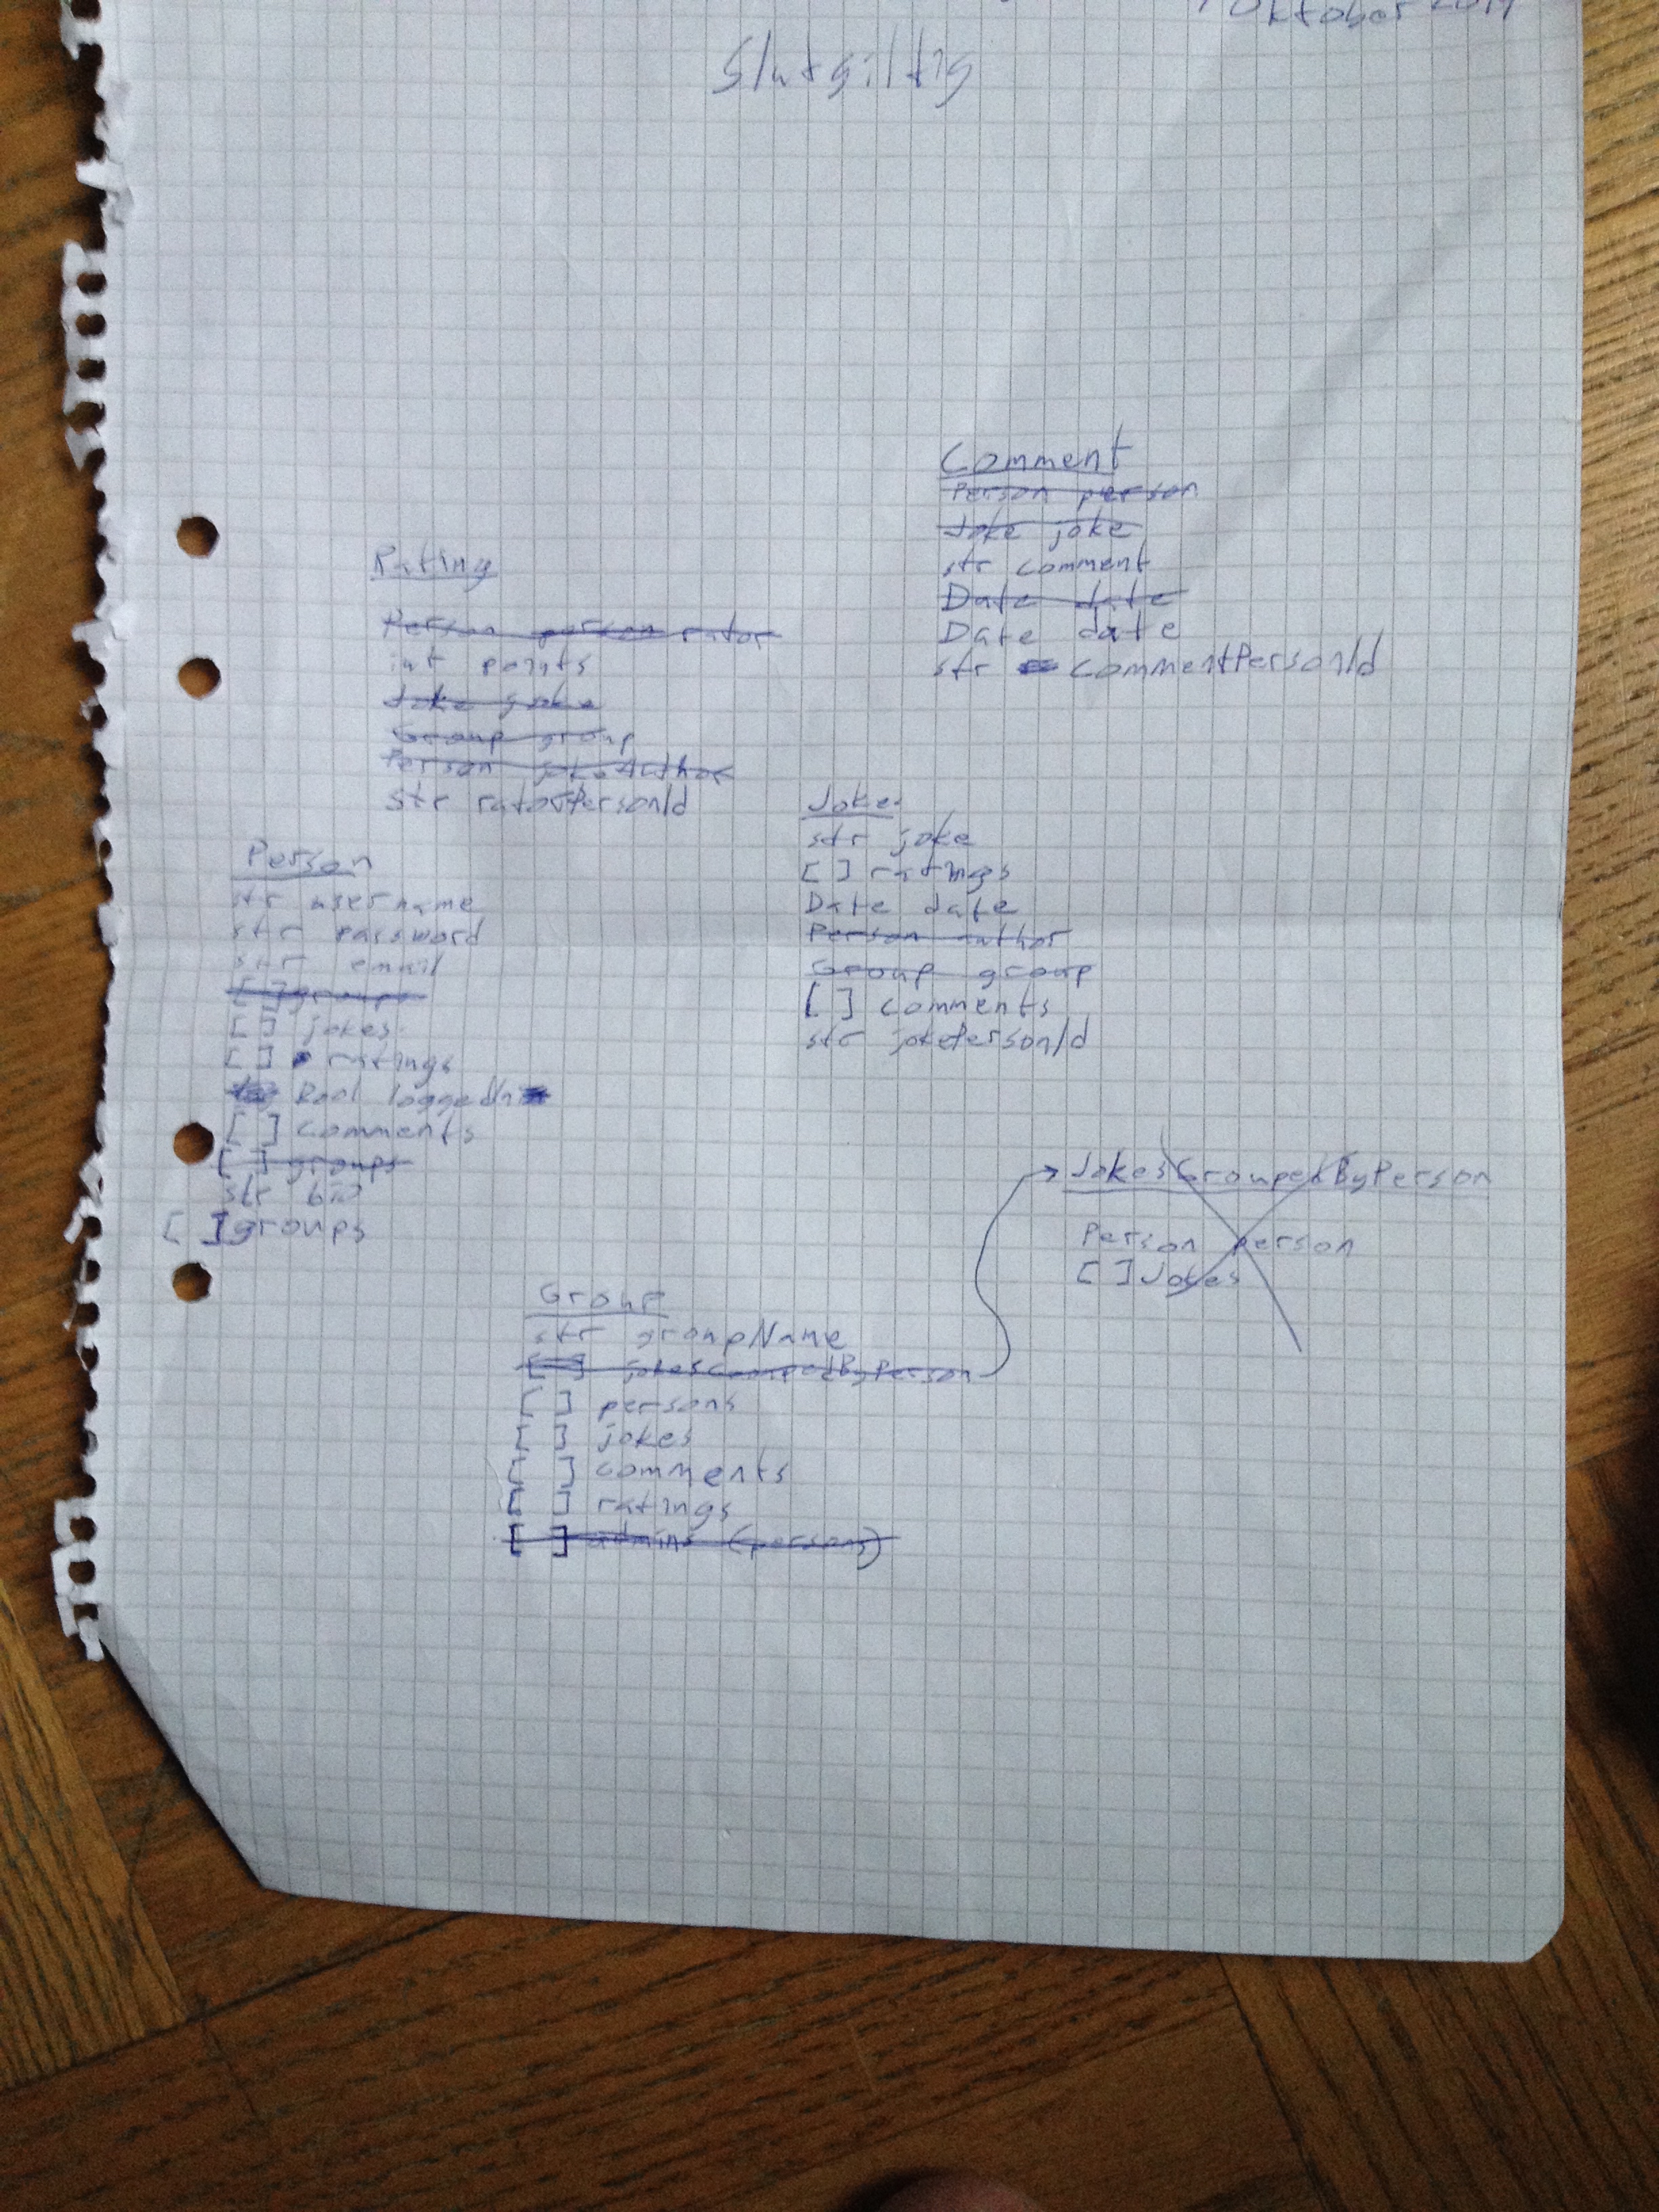 Oktober
Slutgiltig
Comment
Person person
Joke joke
str comment
Date date
Date date
str commentPersonId
Rating
Person person rator
int points
Joke joke
Group group
Person jokeAuthor
str ratorPersonId
Joke
str joke
[ ] ratings
Date date
Person author
Group group
[ ] comments
str jokePersonId
Person
str username
str password
str email
[ ] groups
[ ] jokes
[ ] ratings
Bool loggedIn
[ ] comments
[ ] groups
str bio
[ ] groups
JokesGroupedByPerson
Person person
[ ] Jokes
Group
str groupName
[ ] jokesGroupedByPerson
[ ] persons
[ ] jokes
[ ] comments
[ ] ratings
[ ] admins (persons)